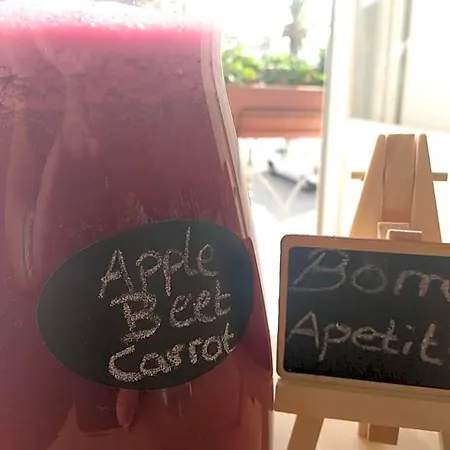 Apple
Beet
Carrot
Bom
Apetit